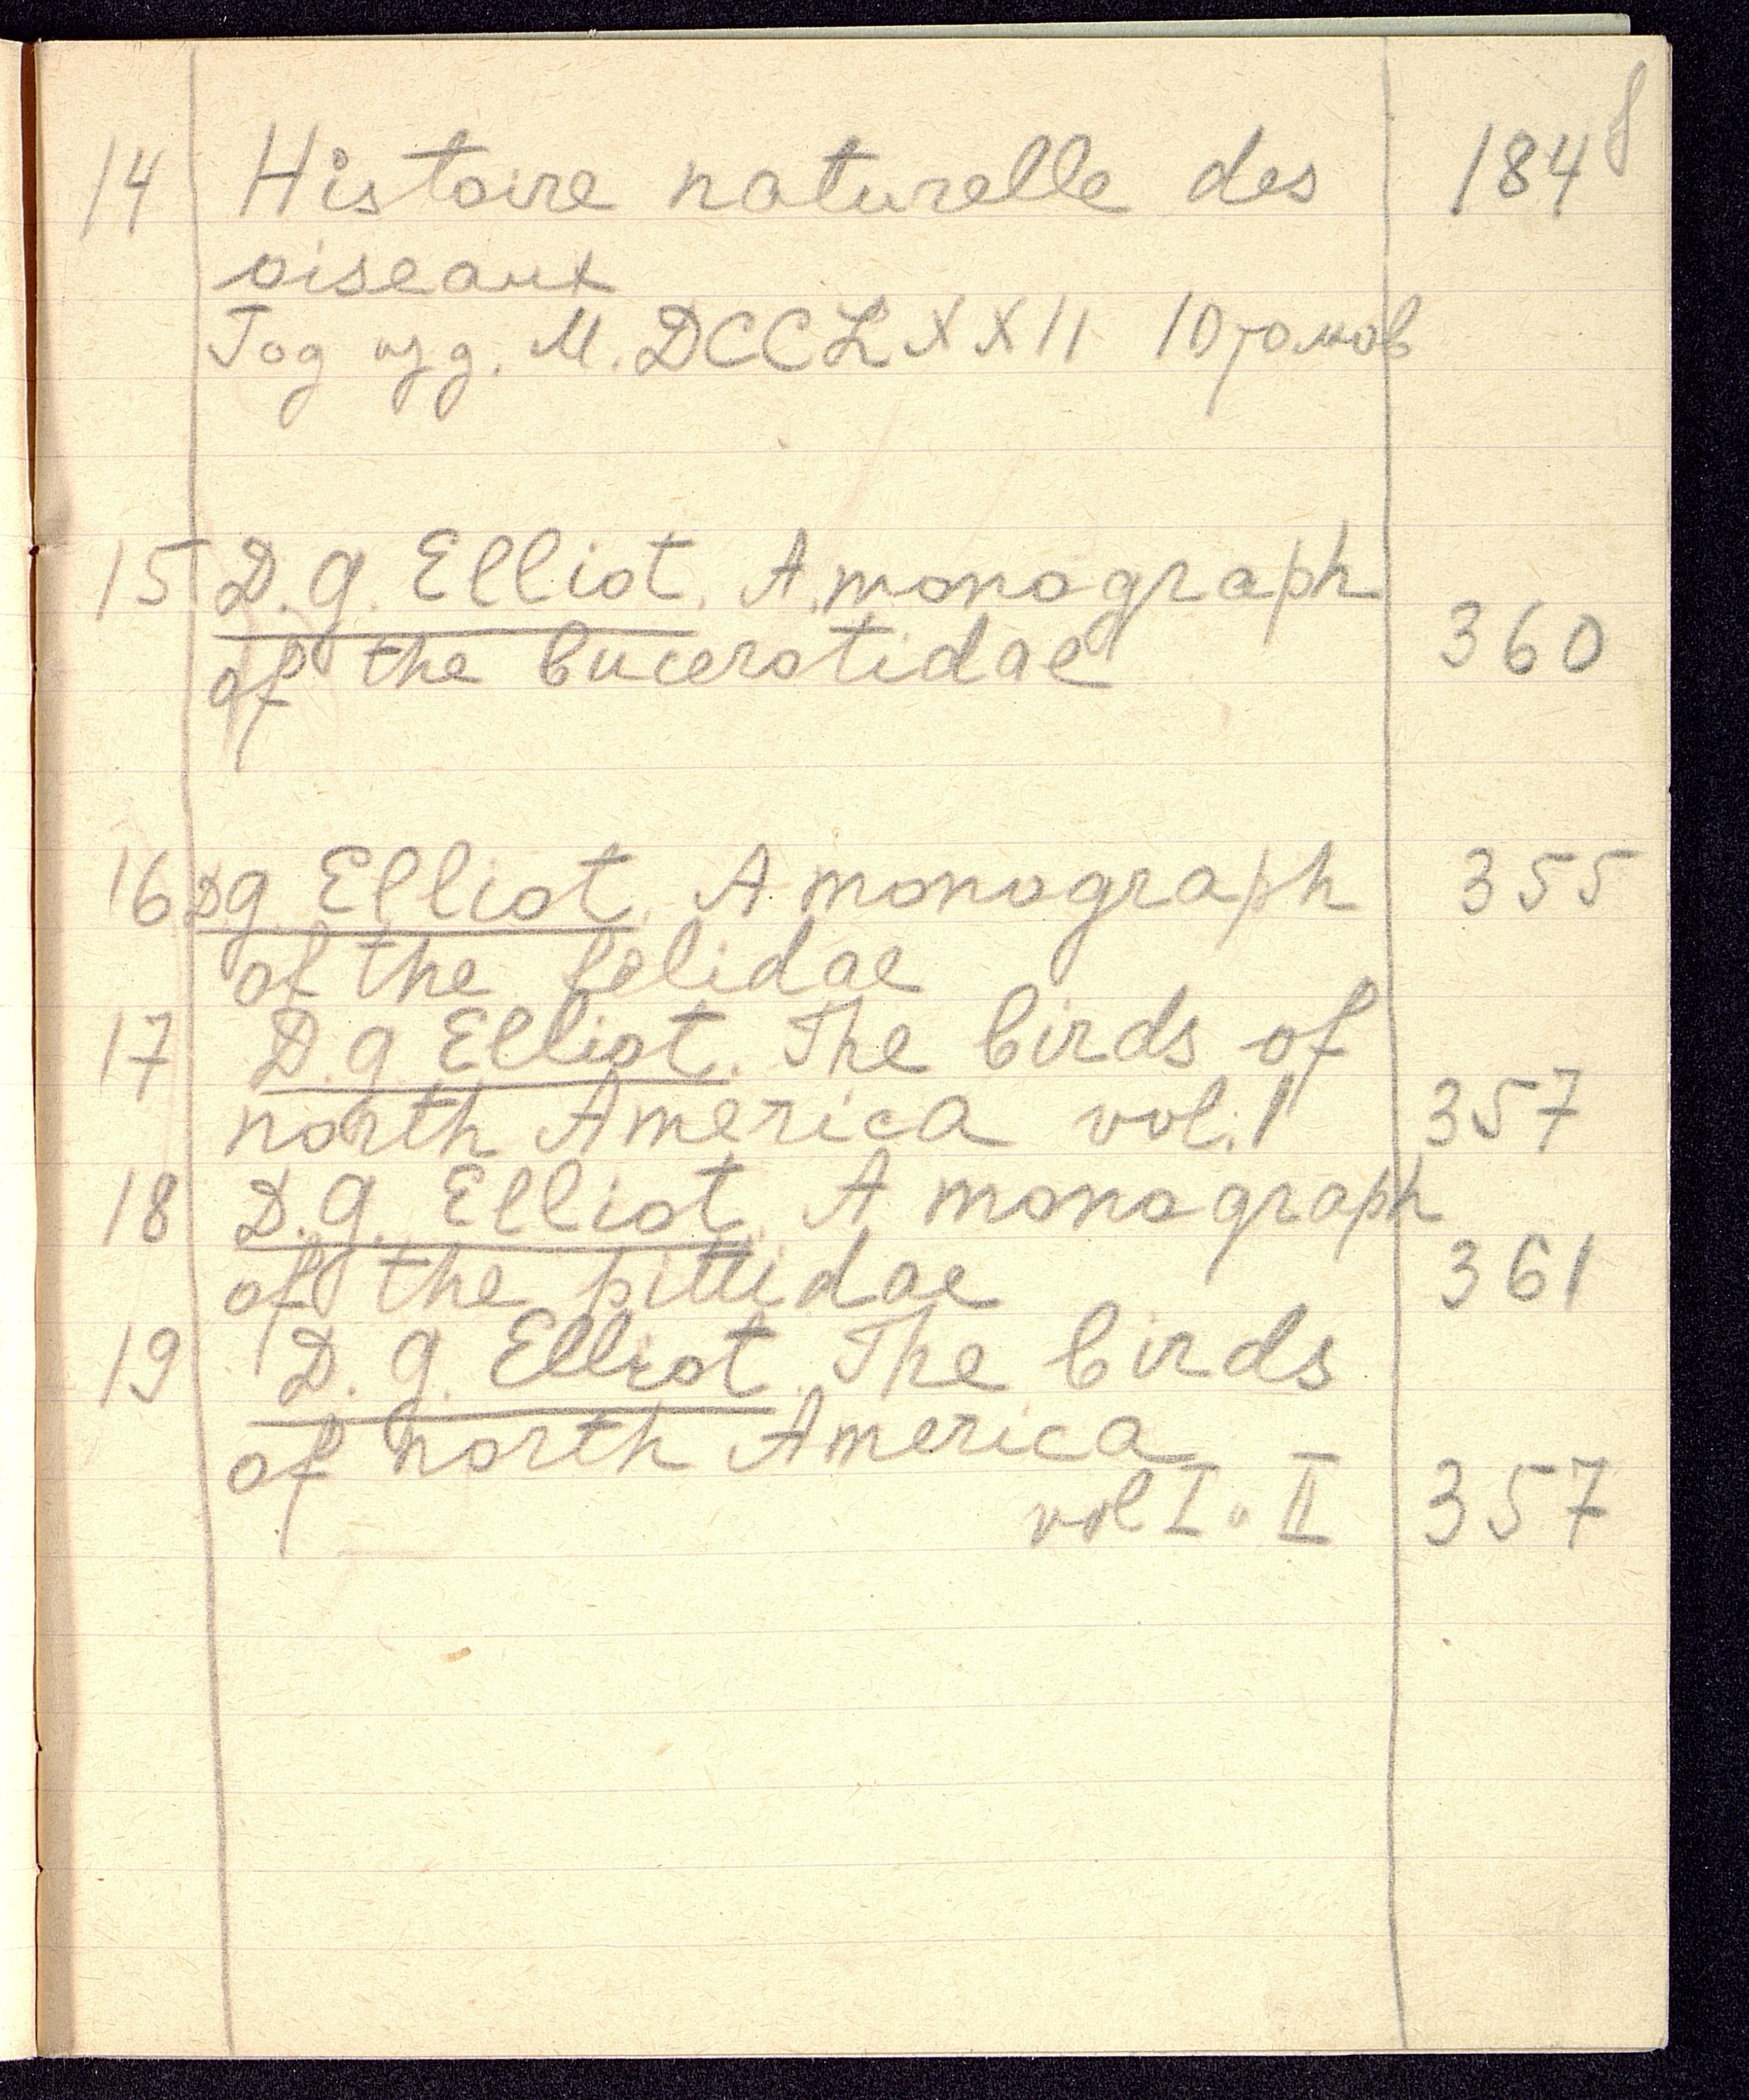 8
14 Histoire naturelle des 184
oiseaux
Год изд. M.DCCLXXII 10 томов
15 D.G. Elliot. A monograph
of the bucerotidae 360
16 DG. Elliot. A monograph 355
of the felidae
17 D.G Elliot. The birds of
north America vol. I 357
18 D.G. Elliot. A monograph
of the pittidae 361
19 D.G. Elliot. The birds
of north America
vol I и II 357